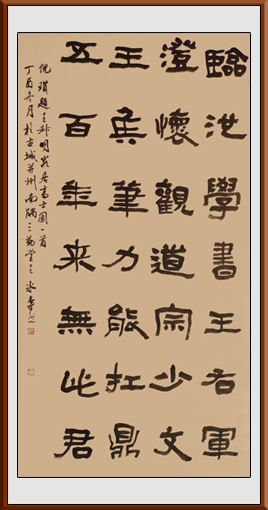 臨池學書王右軍
澄懷觀道宗少文
王侯筆力能扛鼎
五百年来無此君
倪瓚題王叔明岩居高士圖一首
丁酉冬月於古城并州南隅三勤堂